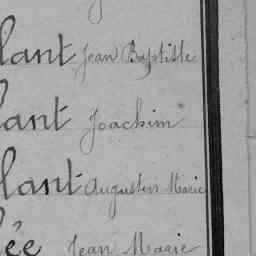 lant Jean Baptiste
lant Joachim
lant Augustin Marie
ée Jean Marie